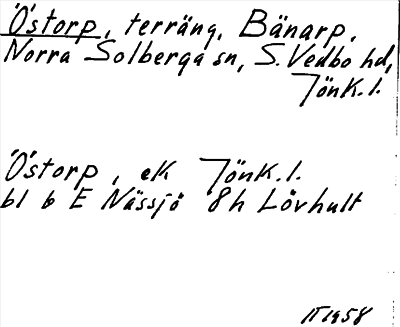 Östorp, terräng, Bänarp,
Norra Solberga sn, S. Vedbo hd,
Jönk. l.
Östorp, ek Jönk. l.
bl 6 E Nässjö 8h Lövhult
1958